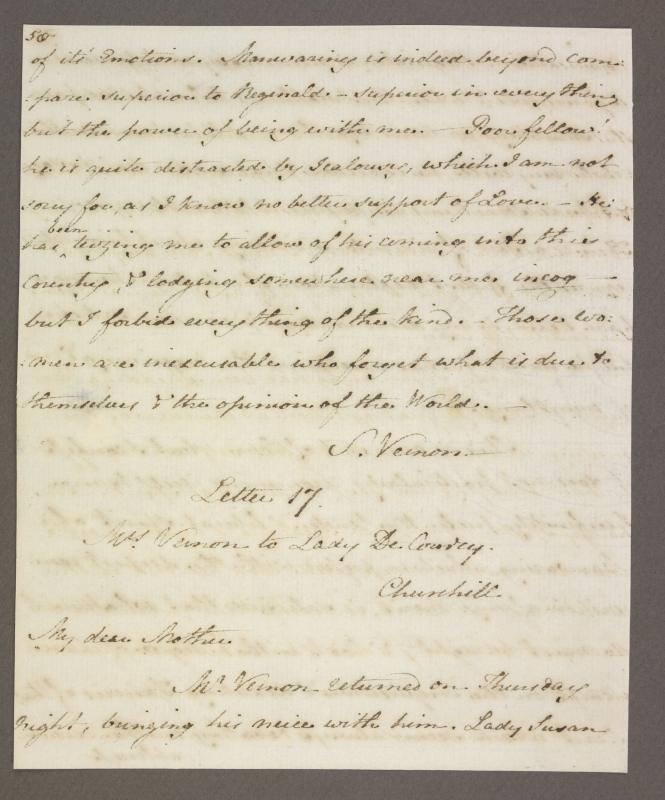 58
of it's Emotions. Manwaring is indeed beyond com:
:pare superior to Reginald - superior in everything
but the power of being with me. - Poor fellow!
he is quite distracted by Jealousy, which I am not
sorry for, as I know no better support of Love. - He
been
has teizing me to allow of his coming into this
Country, & lodging somewhere near me incog -
but I forbid everything of the kind. - Those wo:
:men are inexcusable who forget what is due to
themselves & the opinion of the World. -
S. Vernon
Letter 17.
Mrs. Vernon to Lady De Courcy.
Churchill
My dear Mother
Mr. Vernon returned on Thursday
night, bringing his neice with him. Lady Susan